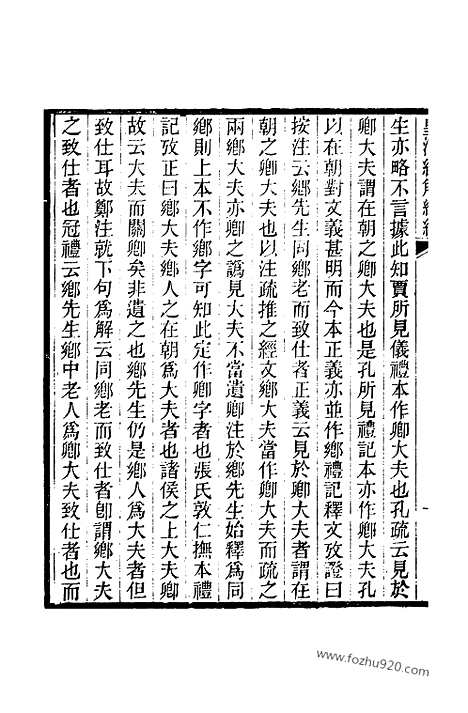 皇清經解續編
生亦略不言據此知賈所見儀禮本作卿大夫也孔疏云見於
卿大夫謂在朝之卿大夫也是孔所見禮記本亦作卿大夫孔
以在朝對文義甚明而今本正義亦並作鄉禮記釋文攷證曰
按注云鄉先生同鄉老而致仕者正義云見於卿大夫者謂在
朝之卿大夫也以注疏推之經文鄉大夫當作卿大夫而疏之
兩鄉大夫亦卿之譌見大夫不當遺卿注於鄉先生始釋爲同
鄉則上本不作鄉字可知此定作鄉字者也張氏敦仁撫本禮
記攷正曰鄉大夫鄉人之在朝爲大夫者也諸侯之上大夫卿
故云大夫而關卿矣非遺之也鄉先生仍是鄉人爲大夫者但
致仕耳故鄭注就下句爲解云同鄉老而致仕者卽謂鄉大夫
之致仕者也冠禮云鄉先生鄉中老人爲卿大夫致仕者也而
www.fozhu920.com